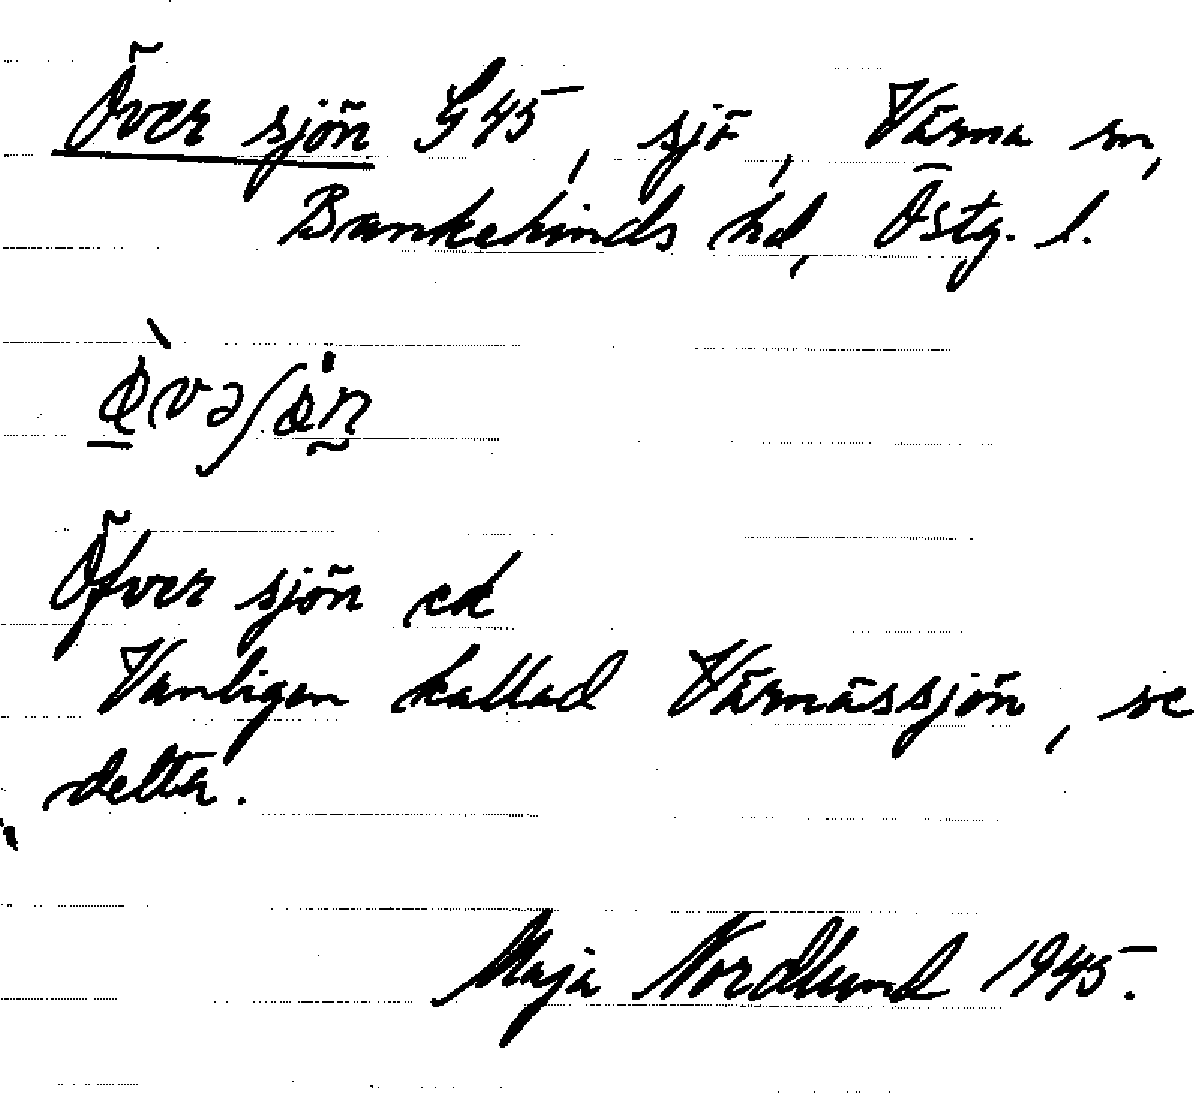 Över sjön G45, sjö, Värna sn,
Bankekinds hd, Östg. l.
Öfver sjön ek
Vanligen kallad Värnässjön, se
detta.
Maja Nordlund 1945.